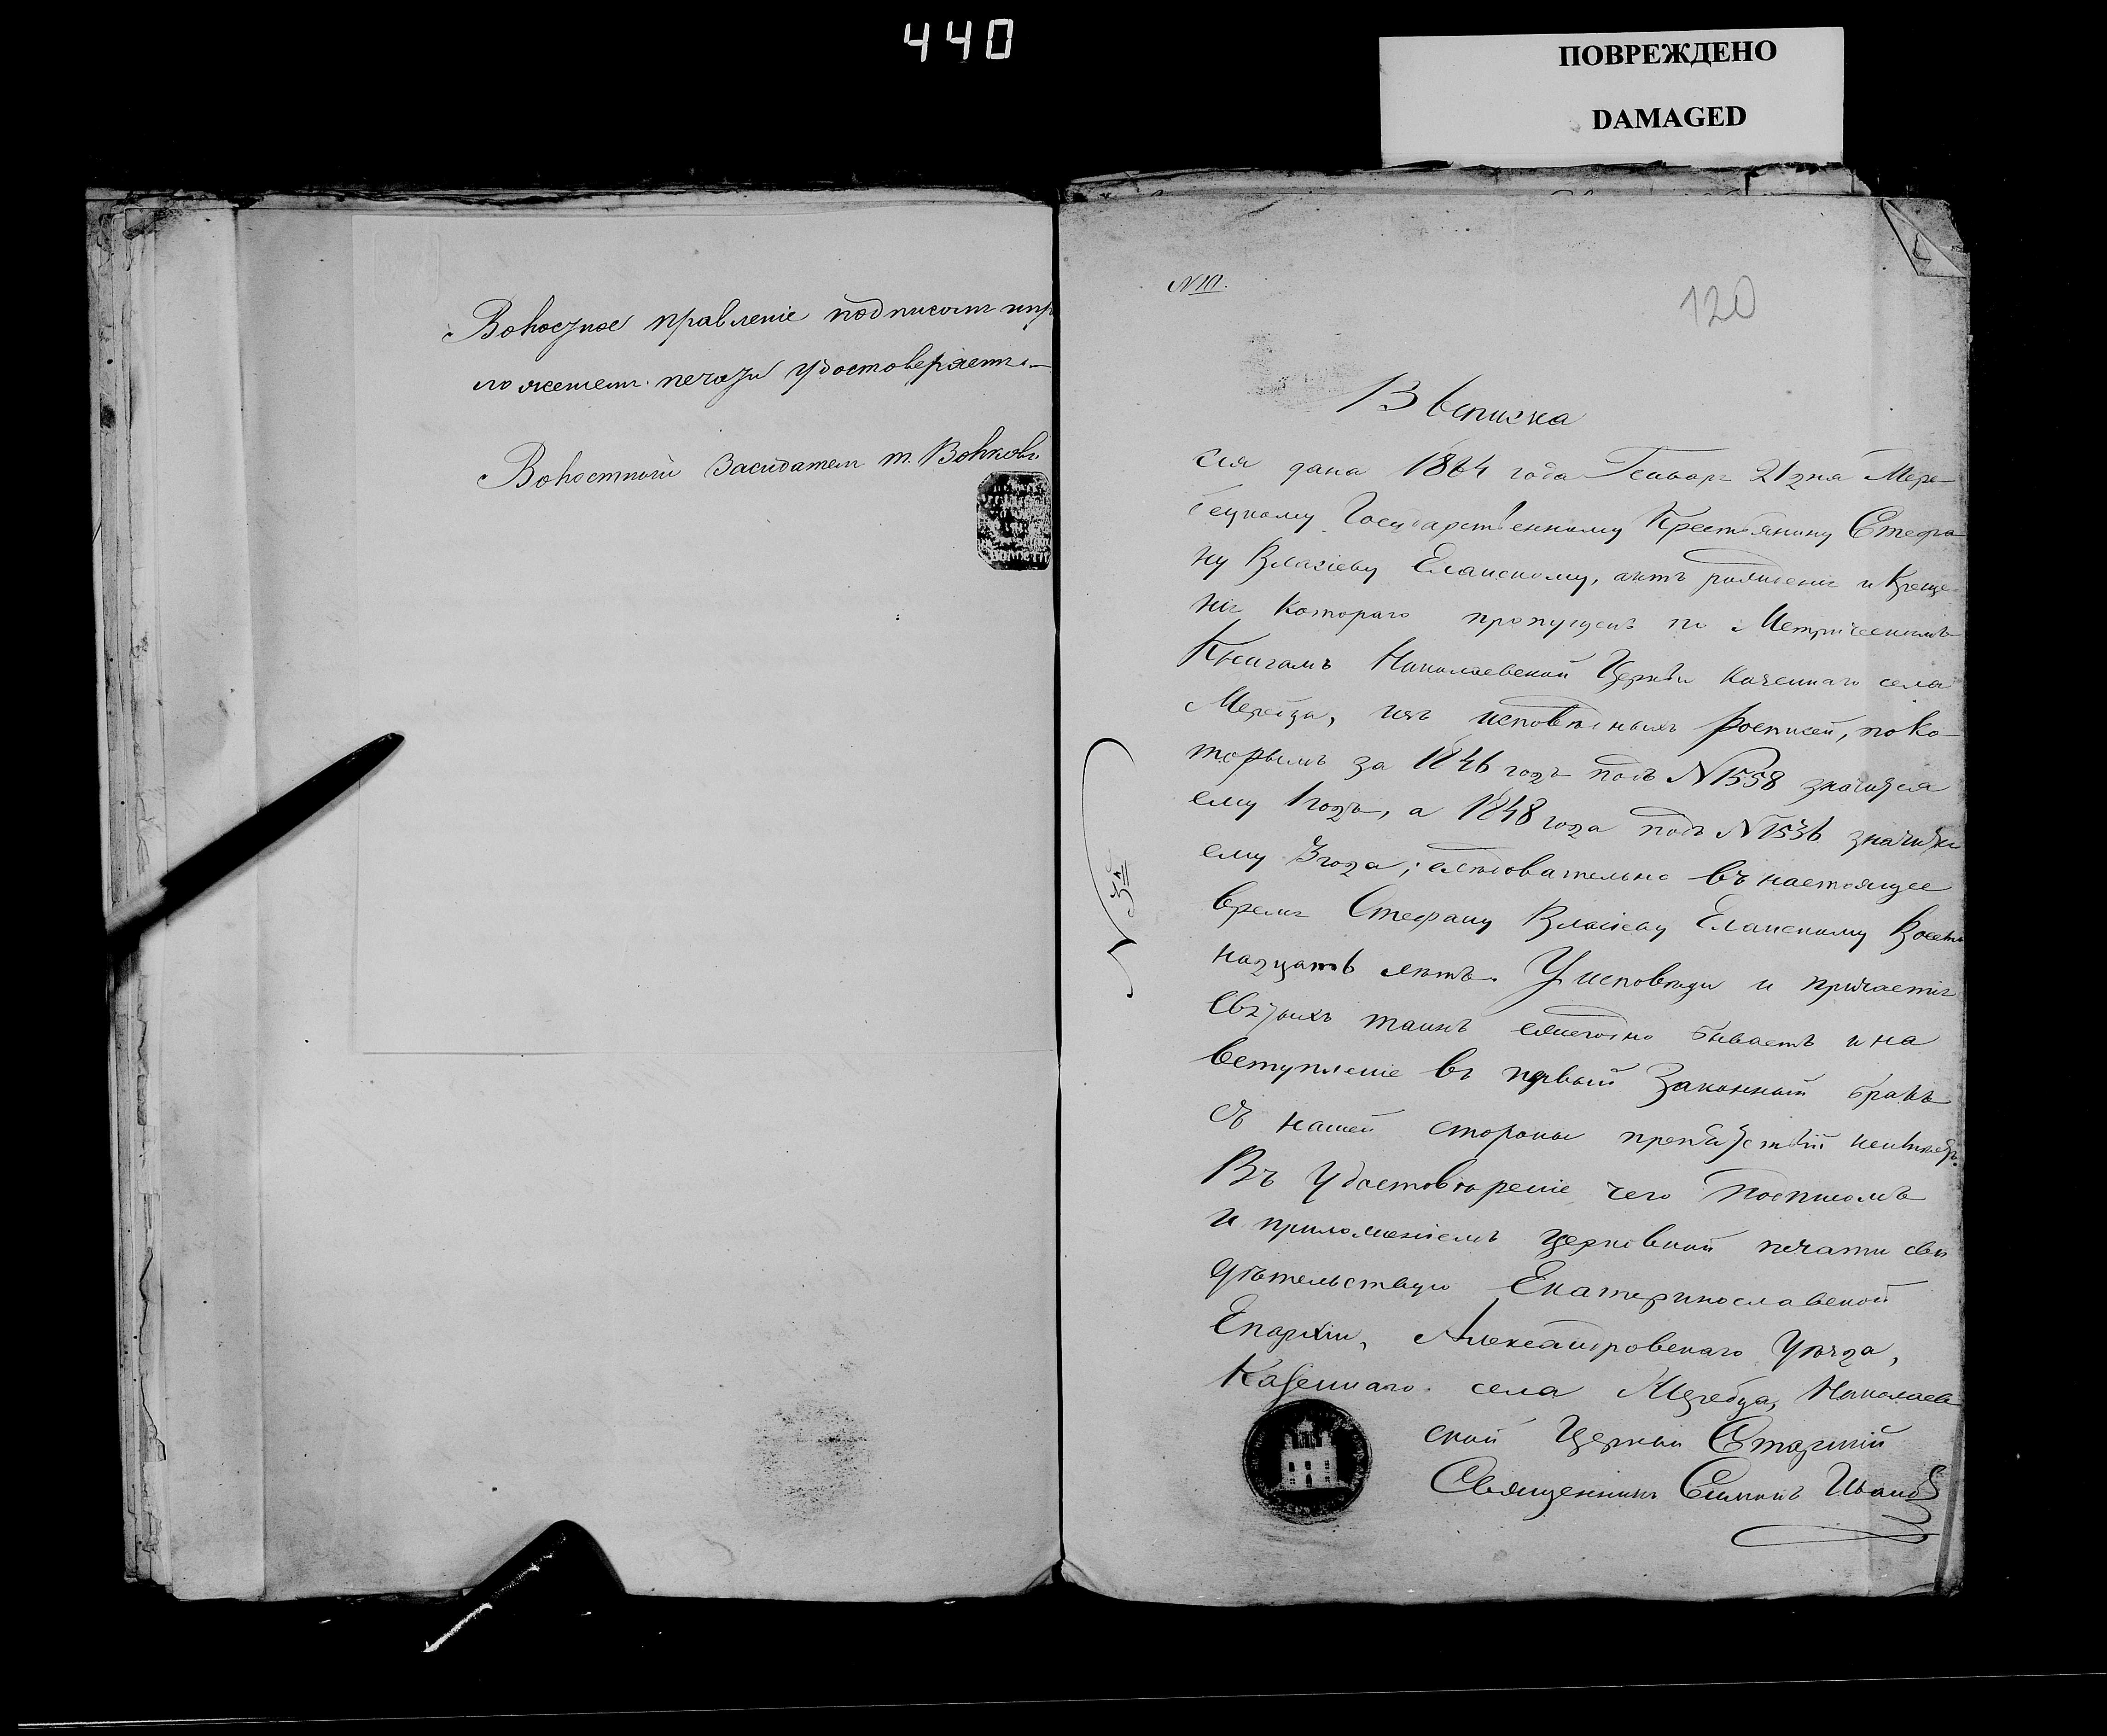 440
ПОВРЕЖДЕНО
DAMAGED
Волостное правленіе подписомъ и пр
ложеніем печати удостоверяетъ
Волостный Заседатель т. Волковъ
волости
120
Выписка
сія дана 1864 года Генваря 21 дня Мере
бецкому Государственному Крестьянину Стефа
ну Власіеву Еланскому, актъ рожденія и Креще
нія Котораго пропущенъ по Метрическимъ
Книгамъ Николаевской Церкви Казеннаго села
Меребца, изъ исповѣдныхъ росписей, по ко
торымъ за 1846 годъ подъ N 1558 значится
ему 1 годъ, а 1848 года подъ N 1536 значится
ему 3 года; слѣдовательно въ настоящее
время Стефану Власіеву Еланскому Восем
надцать лѣтъ. У исповѣди и причастія
Святыхъ таинъ ежегодно бываетъ и на
вступленіе въ первый Законный бракъ
съ нашей стороны препятствій неимѣетъ.
Въ Удостовѣреніе чего подписомъ
и приложеніемъ церковной печати сви
дѣтельствую Екатеринославской
Епархіи, Александровскаго Уѣзда,
Казеннаго села Меребца, Николаев
ской Церкви Старшій
Священникъ Симеонъ Иванов